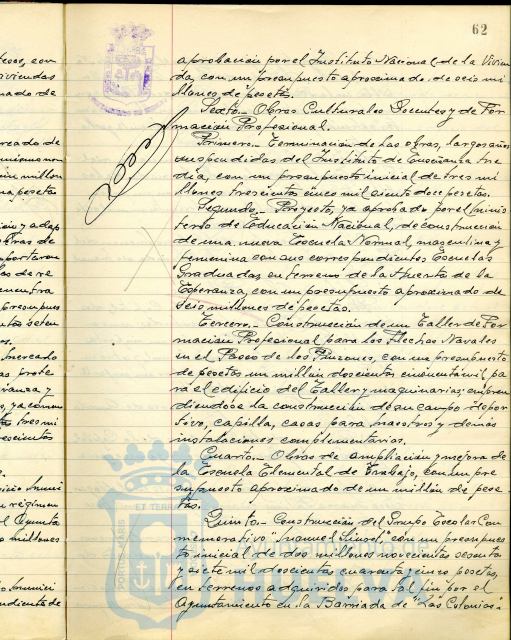 62
aprobación por el Instituto Nacional de la Vivien
da, con un presupuesto aproximado de seis mi
llones de pesetas.
Sexto.- Obras Culturales Docentes y de For
mación Profesional.
Primero.- Terminación de las obras, largos años
suspendidas del Instituto de Enseñanza Me
dia, con un presupuesto inicial de tres mi
llones trescientas cinco mil ciento doce pesetas.
Segundo.- Proyecto, ya aprobado por el Minis
terio de Educación Nacional, de construcción
de una nueva Escuela Normal, masculina y
femenina con sus correspondientes Escuelas
Graduadas, en terrenos de la Huerta de la
Esperanza, con un presupuesto aproximado de
seis millones de pesetas.
Tercero.- Construcción de un Taller de For
mación Profesional para los Flechas Navales
en el Paseo de los Pinzones, con un presupuesto
de pesetas un millón doscientas cincuenta mil pa
ra el edificio del Taller y maquinarias, empren
diendose la construcción de su campo depor
tivo, capilla, casas para maestros y demás
instalaciones complementarias.
Cuarto.- Obras de ampliación y mejora de
la Escuela Elemental de Trabajo, con un pre
supuesto aproximado de un millón de pese
tas.
Quinto.- Construcción del Grupo Escolar Con
memorativo "Manuel Siurot" con un presupues
to inicial de dos millones novecientas sesenta
y siete mil doscientas cuarenta y cinco pesetas,
en terrenos adquiridos para tal fin por el
Ayuntamiento en la Barriada de "Las Colonias".